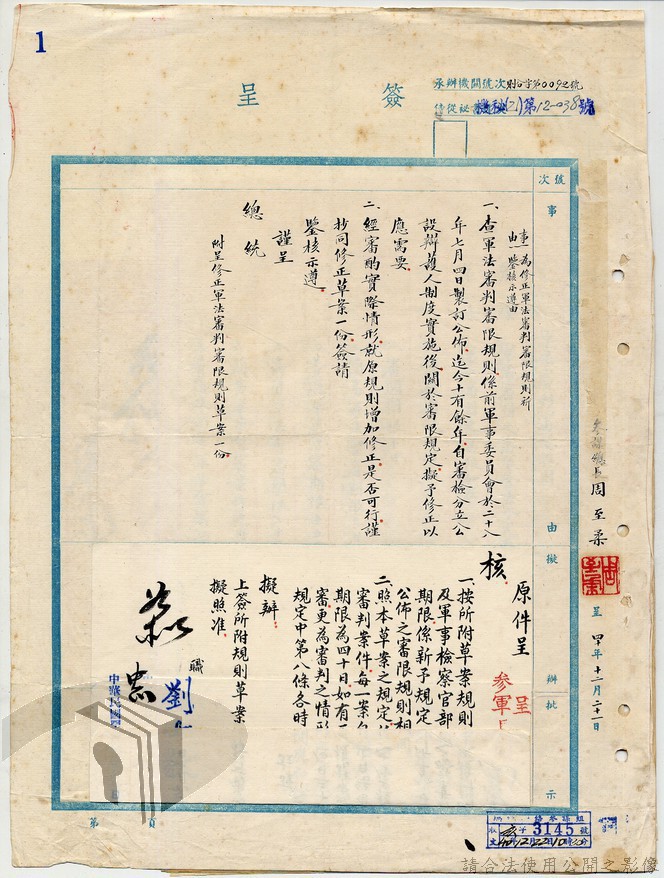 1
簽呈
承辦機關號次
號次
事由擬辦批示
事由
一為修正軍法審判審限規則祈
鑒核示遵由
一、查軍法審判審限規則係前軍事委員會於二十八
年七月四日製訂公佈迄今十有餘年自審檢分立公
設辯護人制度實施後關於審限規定擬予修正以
應需要
二、經審酌實際情形就原規則增加修正是否可行謹
抄同修正草案一份簽請
鑒核示遵
謹呈
總統
附呈修正軍法審判審限規則草案一份
參謀總長周至柔
呈
四十年十二月二十一日
原件呈
核
呈
參軍
一、按所附草案規則
及軍事檢察官部
期限係新予規定
公佈之審限規則相
二、照本草案之規定
審判案件每一案
期限為四十日如有
審更為審判之情形
規定中第八條各時
擬辦
上簽所附規則草案
擬照准
職劉
中華民國
第頁
3145
請合法使用公開之影像